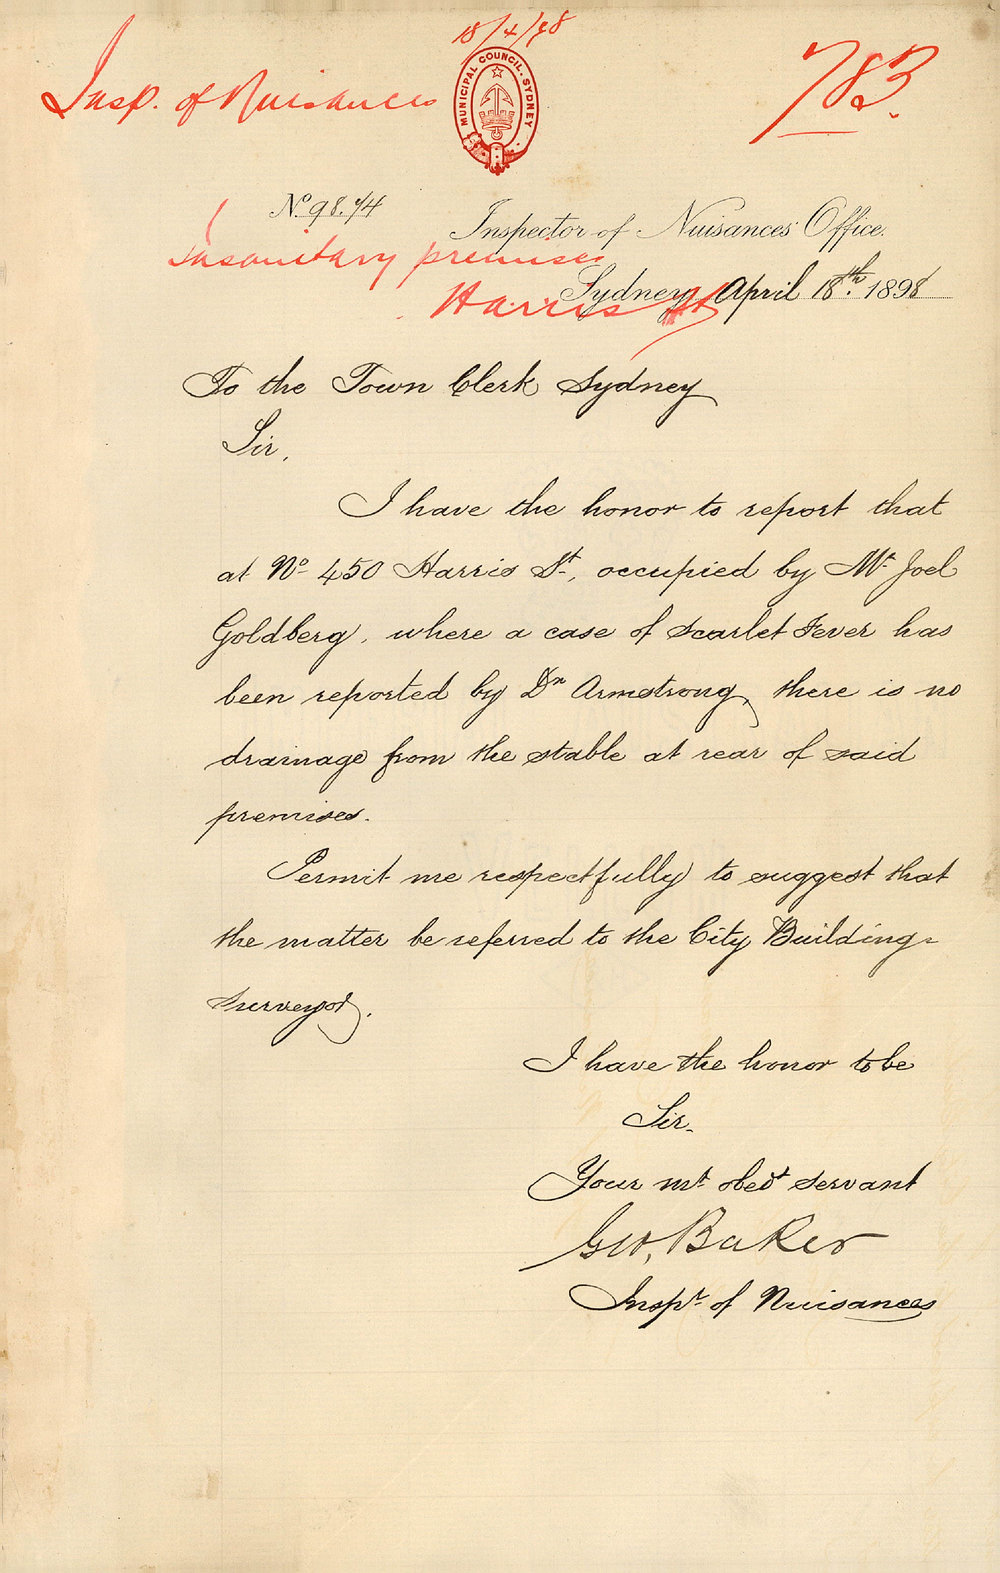 18/4/98
Insp. of Nuisances
MUNICIPAL COUNCIL. SYDNEY
783.
No. 98.44
Inspector of Nuisances Office.
Insanitary premises
Sydney April 18th. 1898
Harris St
To the Town Clerk Sydney
Sir,
I have the honor to report that
at No 450 Harris St, occupied by Mr Joel
Goldberg, where a case of Scarlet Fever has
been reported by Dr Armstrong, there is no
drainage from the stable at rear of said
premises.
Permit me respectfully to suggest that
the matter be referred to the City Building
Surveyor.
I have the honor to be
Sir.
Your mt obedt servant
Geo, Baker
Inspr of Nuisances